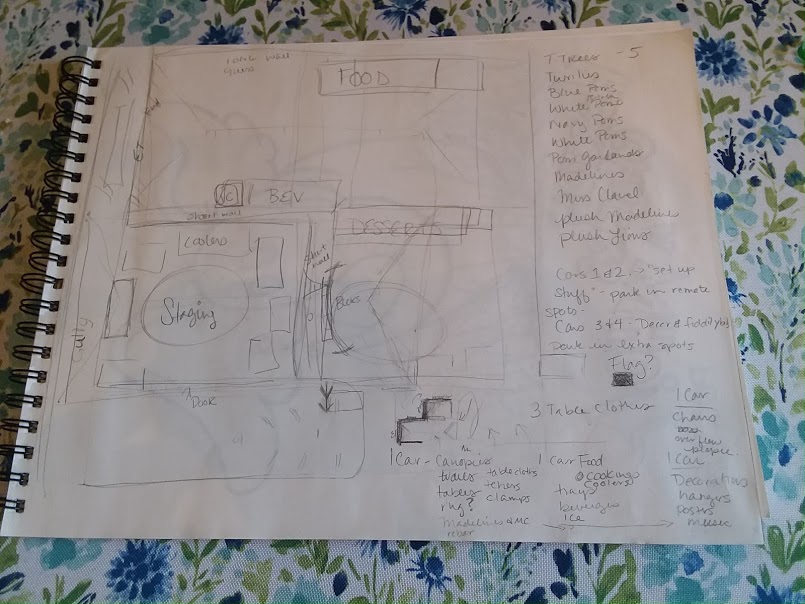 FOOD
BEV
Short wall
DESSERTS
Coolers
Short wall
Staging
Door
7 Trees - 5
Tunilus
Blue Poms
White Poms
Navy Poms
White Poms
Pom Garlands
Madelines
Miss Clavel
plush Madeline
plush Lions
Cars 1 & 2 -> "set up
stuff" - park in remote
spots -
Cars 3 & 4 - Decor &
Park in extra spots
Flag?
3 Table Clothes
1 Car - Canopies
tables
rug?
Madelines & MC
rebar
table cloths
clamps
1 Car Food
cooking
coolers
trays
beverages
ice
1 Car
Chairs
over flow
1 Car
Decorations
hangers
posters